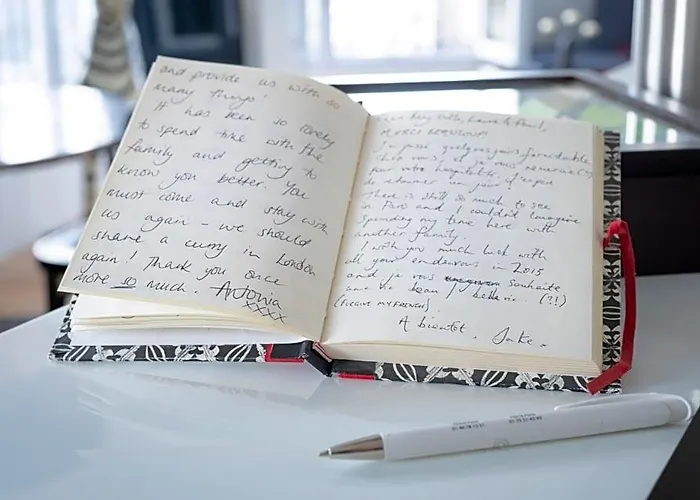 and provide us with so
many things!
It has been so lovely
to spend time with the
family and getting to
know you better. You
must come and stay with
us again - we should
share a curry in London
again! Thank you once
more so much. Antonia
xxxx
MERCI BEAUCOUP!
J'ai passé quelques jours formidable
chez vous, et je vous remercie (?!)
pour votre hospitalité.
There is still so much to see
in Paris and I couldn't imagine
spending my time here with
another family.
I wish you much luck with
all your endeavours in 2015
and je vous souhaite
une vie (?!)
(FORGIVE MY FRENCH)
A bientot, Jake x